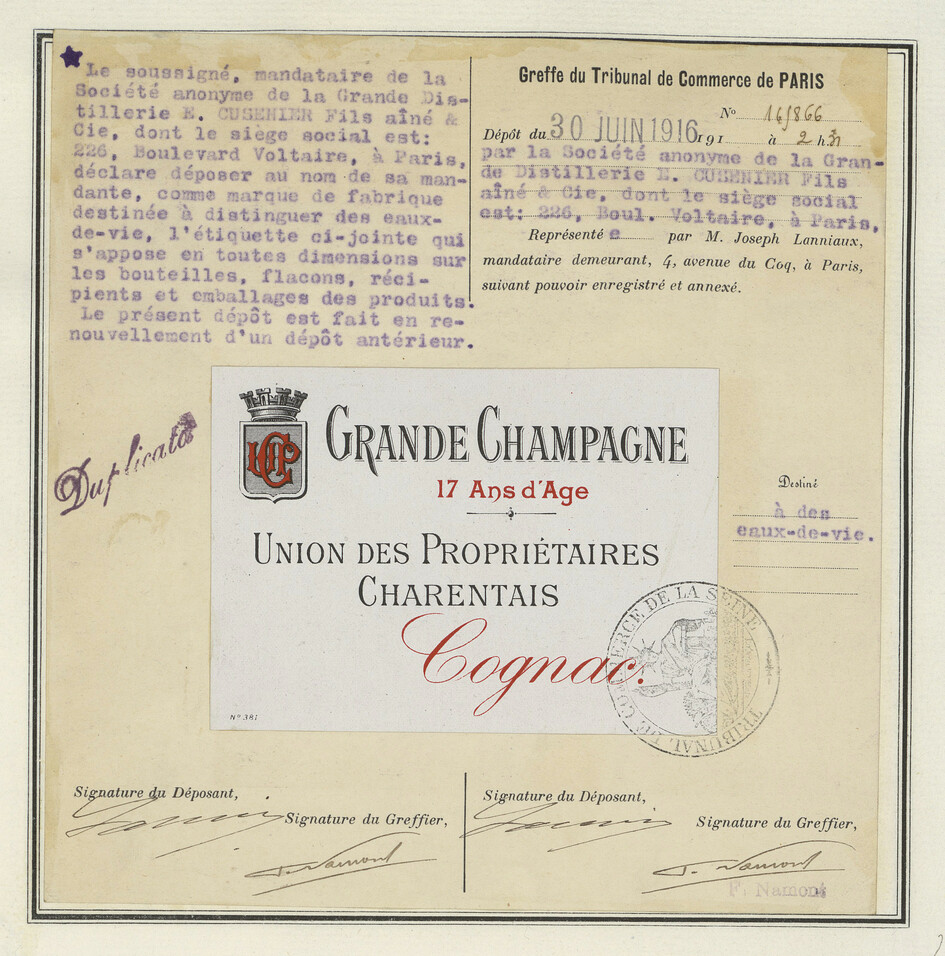 Le soussigné, mandataire de la
Société anonyme de la Grande Dis-
tillerie E. CUSENIER Fils aîné &
Cie, dont le siège social est:
226, Boulevard Voltaire, à Paris,
déclare déposer au nom de sa man-
dante, comme marque de fabrique
destinée à distinguer des eaux-
de-vie, l'étiquette ci-jointe qui
s'appose en toutes dimensions sur
les bouteilles, flacons, réci-
pients et emballages des produits.
Le présent dépôt est fait en re-
nouvellement d'un dépôt antérieur.
Greffe du Tribunal de Commerce de PARIS
No 16866
Dépôt du 30 JUIN 1916 191 à 2 h
par la Société anonyme de la Gran-
de Distillerie E. CUSENIER Fils
aîné & Cie, dont le siège social
est: 226, Boul. Voltaire, à Paris,
Représenté e par M. Joseph Lanniaux,
mandataire demeurant, 4, avenue du Coq, à Paris,
suivant pouvoir enregistré et annexé.
Duplicata
GRANDE CHAMPAGNE
17 Ans d'Age
UNION DES PROPRIÉTAIRES
CHARENTAIS
Cognac.
No 381
Destiné
à des
eaux-de-vie.
TRIBUNAL DE COMMERCE DE LA SEINE
Signature du Déposant,
Signature du Greffier,
F. Namont
Signature du Déposant,
Signature du Greffier,
F. Namont
F. Namont